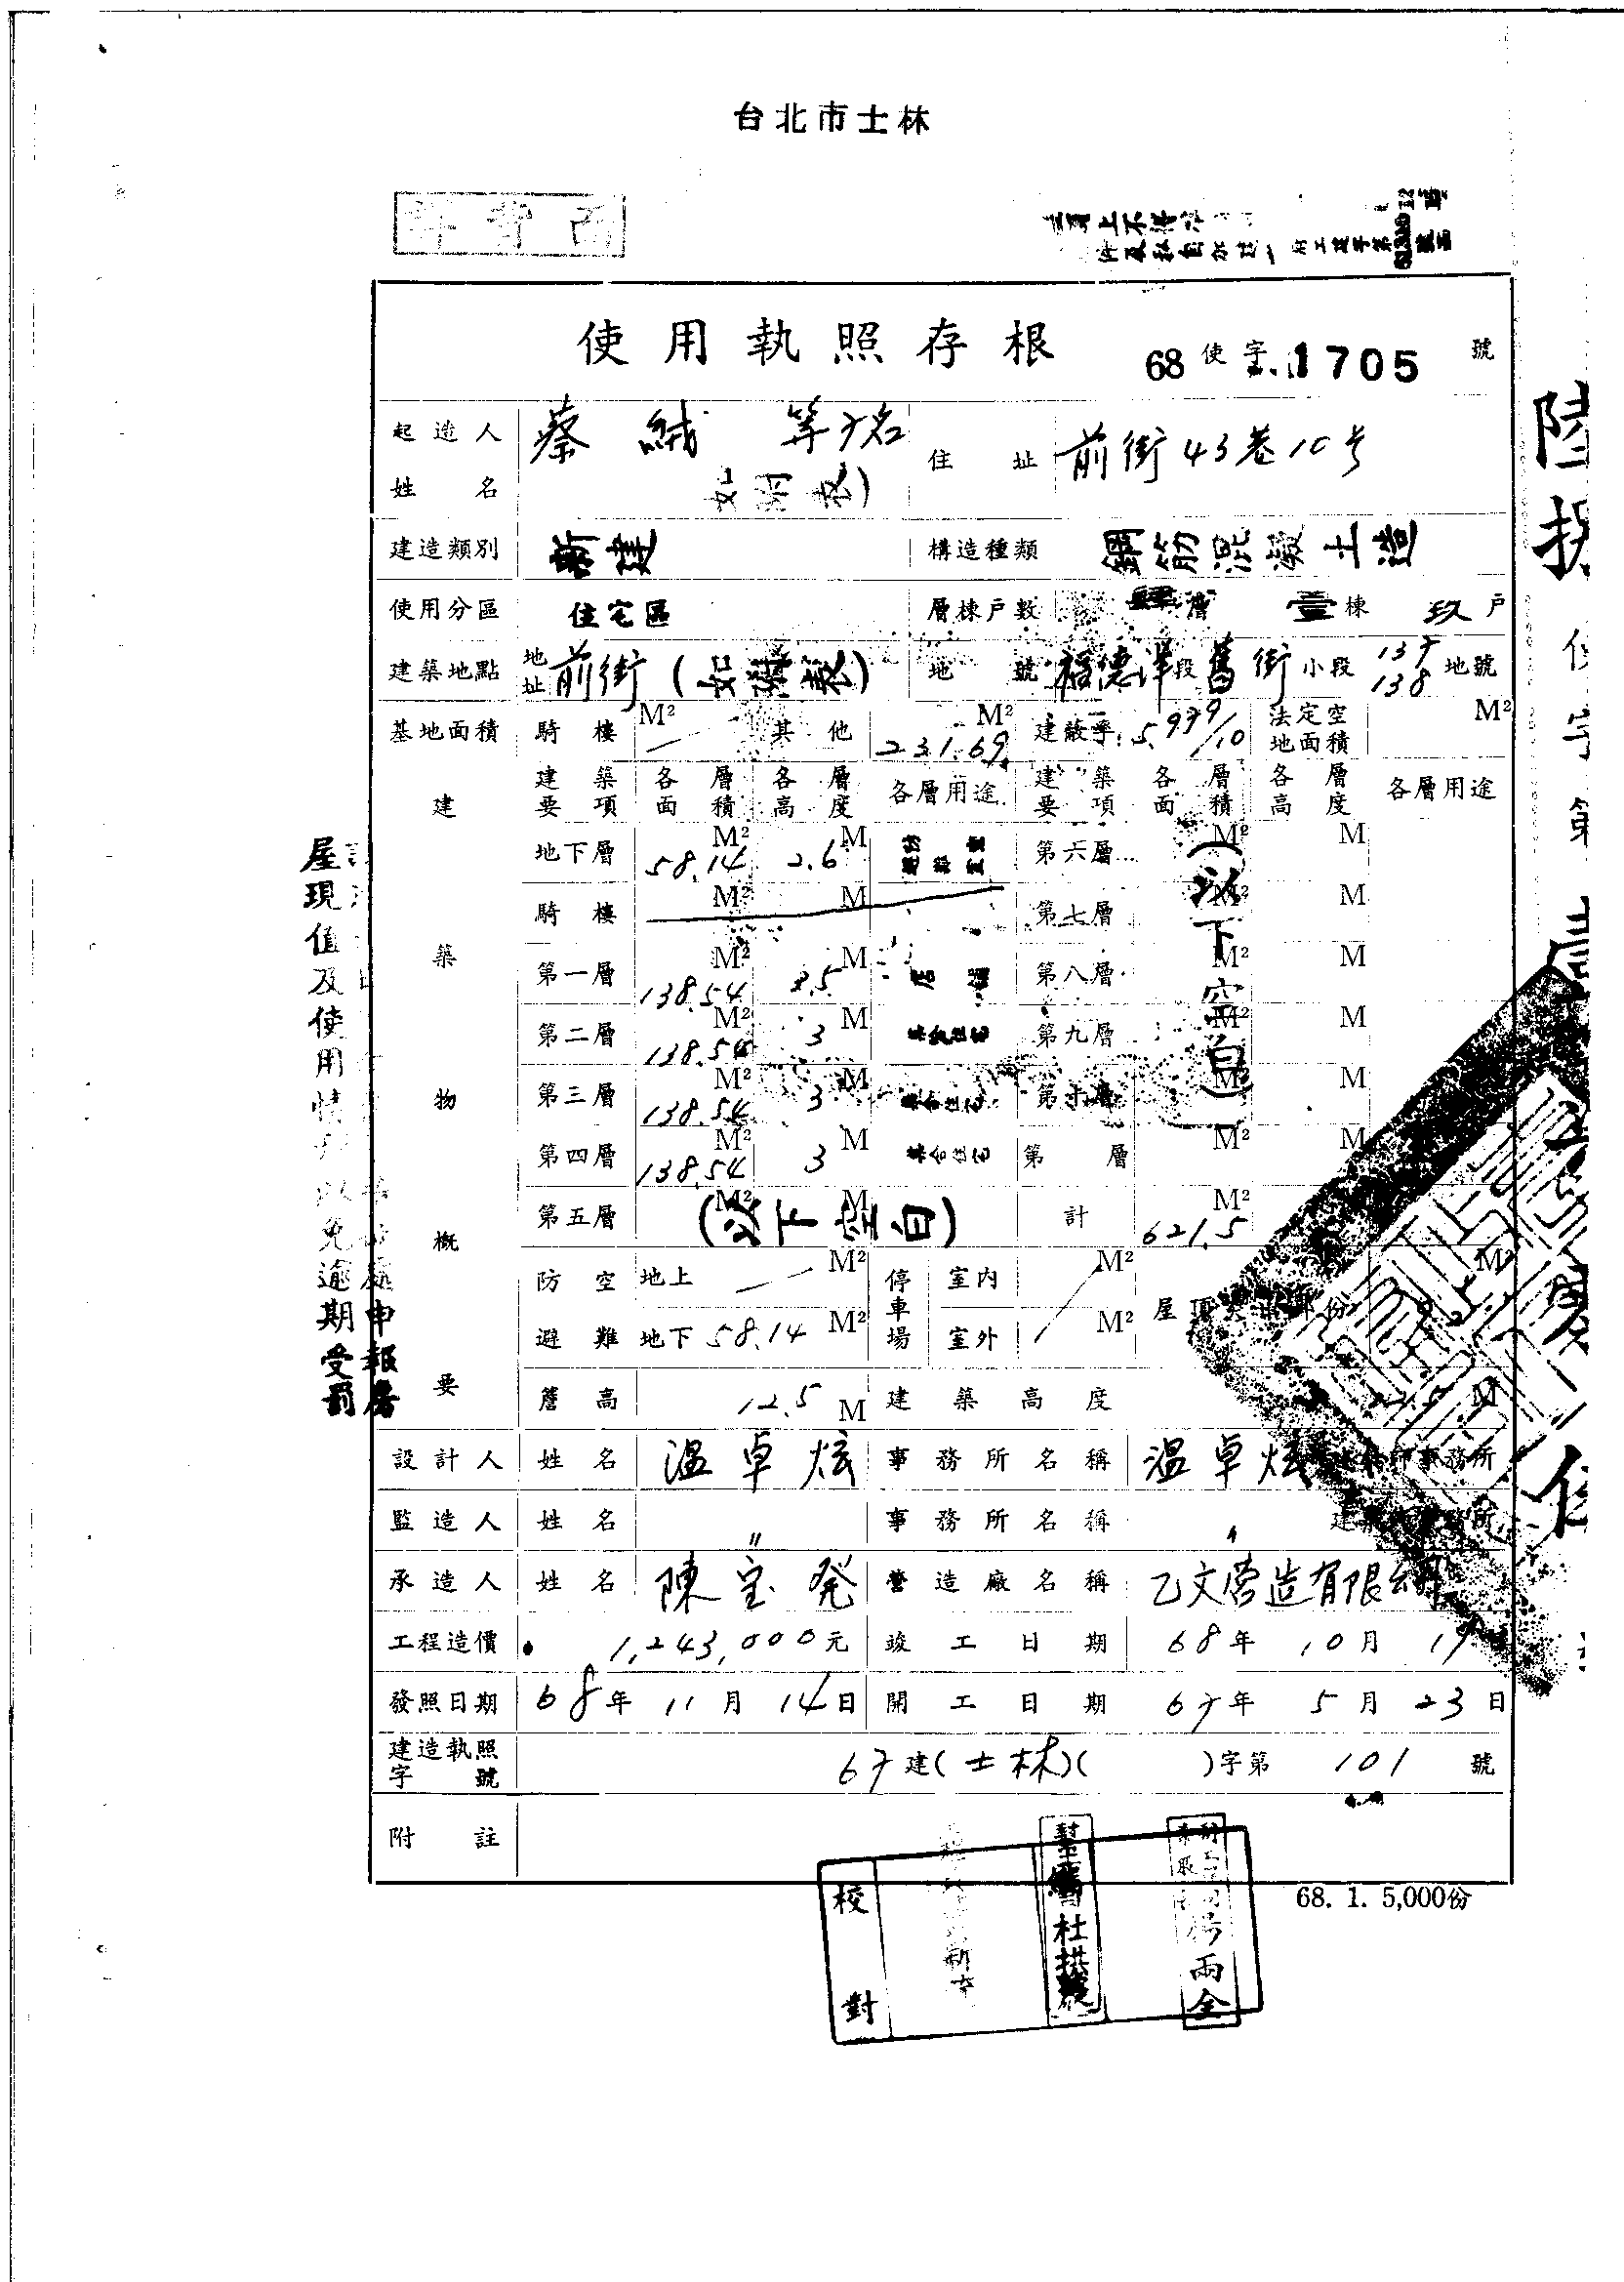 台北市士林
使用執照存根
68 使字 1705 號
起造人姓名 蔡絨 等7名 (如附表)
住址 前街43巷10号
建造類別 新建
構造種類 鋼筋混凝土造
使用分區 住宅區
層棟戶數 肆層 壹棟 玖戶
建築地點 地址 前街(如附表)
地號 福德洋段舊街小段 137 138 地號
基地面積 騎樓 M² 其他 231.69 M²
建蔽率 5.979/10
法定空地面積 M²
建築物概要
建築要項 各層面積 各層高度 各層用途 建築要項 各層面積 各層高度 各層用途
地下層 58.14 M² 2.6 M 第六層 M² M
騎樓 M² M 第七層 M² M
第一層 138.54 M² 3.5 M 店舖 第八層 M² M
第二層 138.54 M² 3 M 集合住宅 第九層 M² M
第三層 138.54 M² 3 M 集合住宅 第十層 M² M
第四層 138.54 M² 3 M 集合住宅 第 層 M² M
(以下空白)
第五層 M² M (以下空白) 計 621.5 M²
防空避難 地上 M² 停車場 室內 M²
地下 58.14 M² 室外 M²
屋頂突出部份 M²
簷高 12.5 M 建築高度 M
設計人 姓名 温卓炫 事務所名稱 温卓炫 建築師事務所
監造人 姓名 〃 事務所名稱 〃
承造人 姓名 陳宝発 營造廠名稱 乙文營造有限公司
工程造價 1,243,000元 竣工日期 68年10月19
發照日期 68年11月14日 開工日期 67年5月23日
建造執照字號 67建(士林)( )字第101號
附註
68. 1. 5,000份
校對
杜拱
兩全
屋現值及使用情形
以免逾期受罰
處申報房
陸
使字第